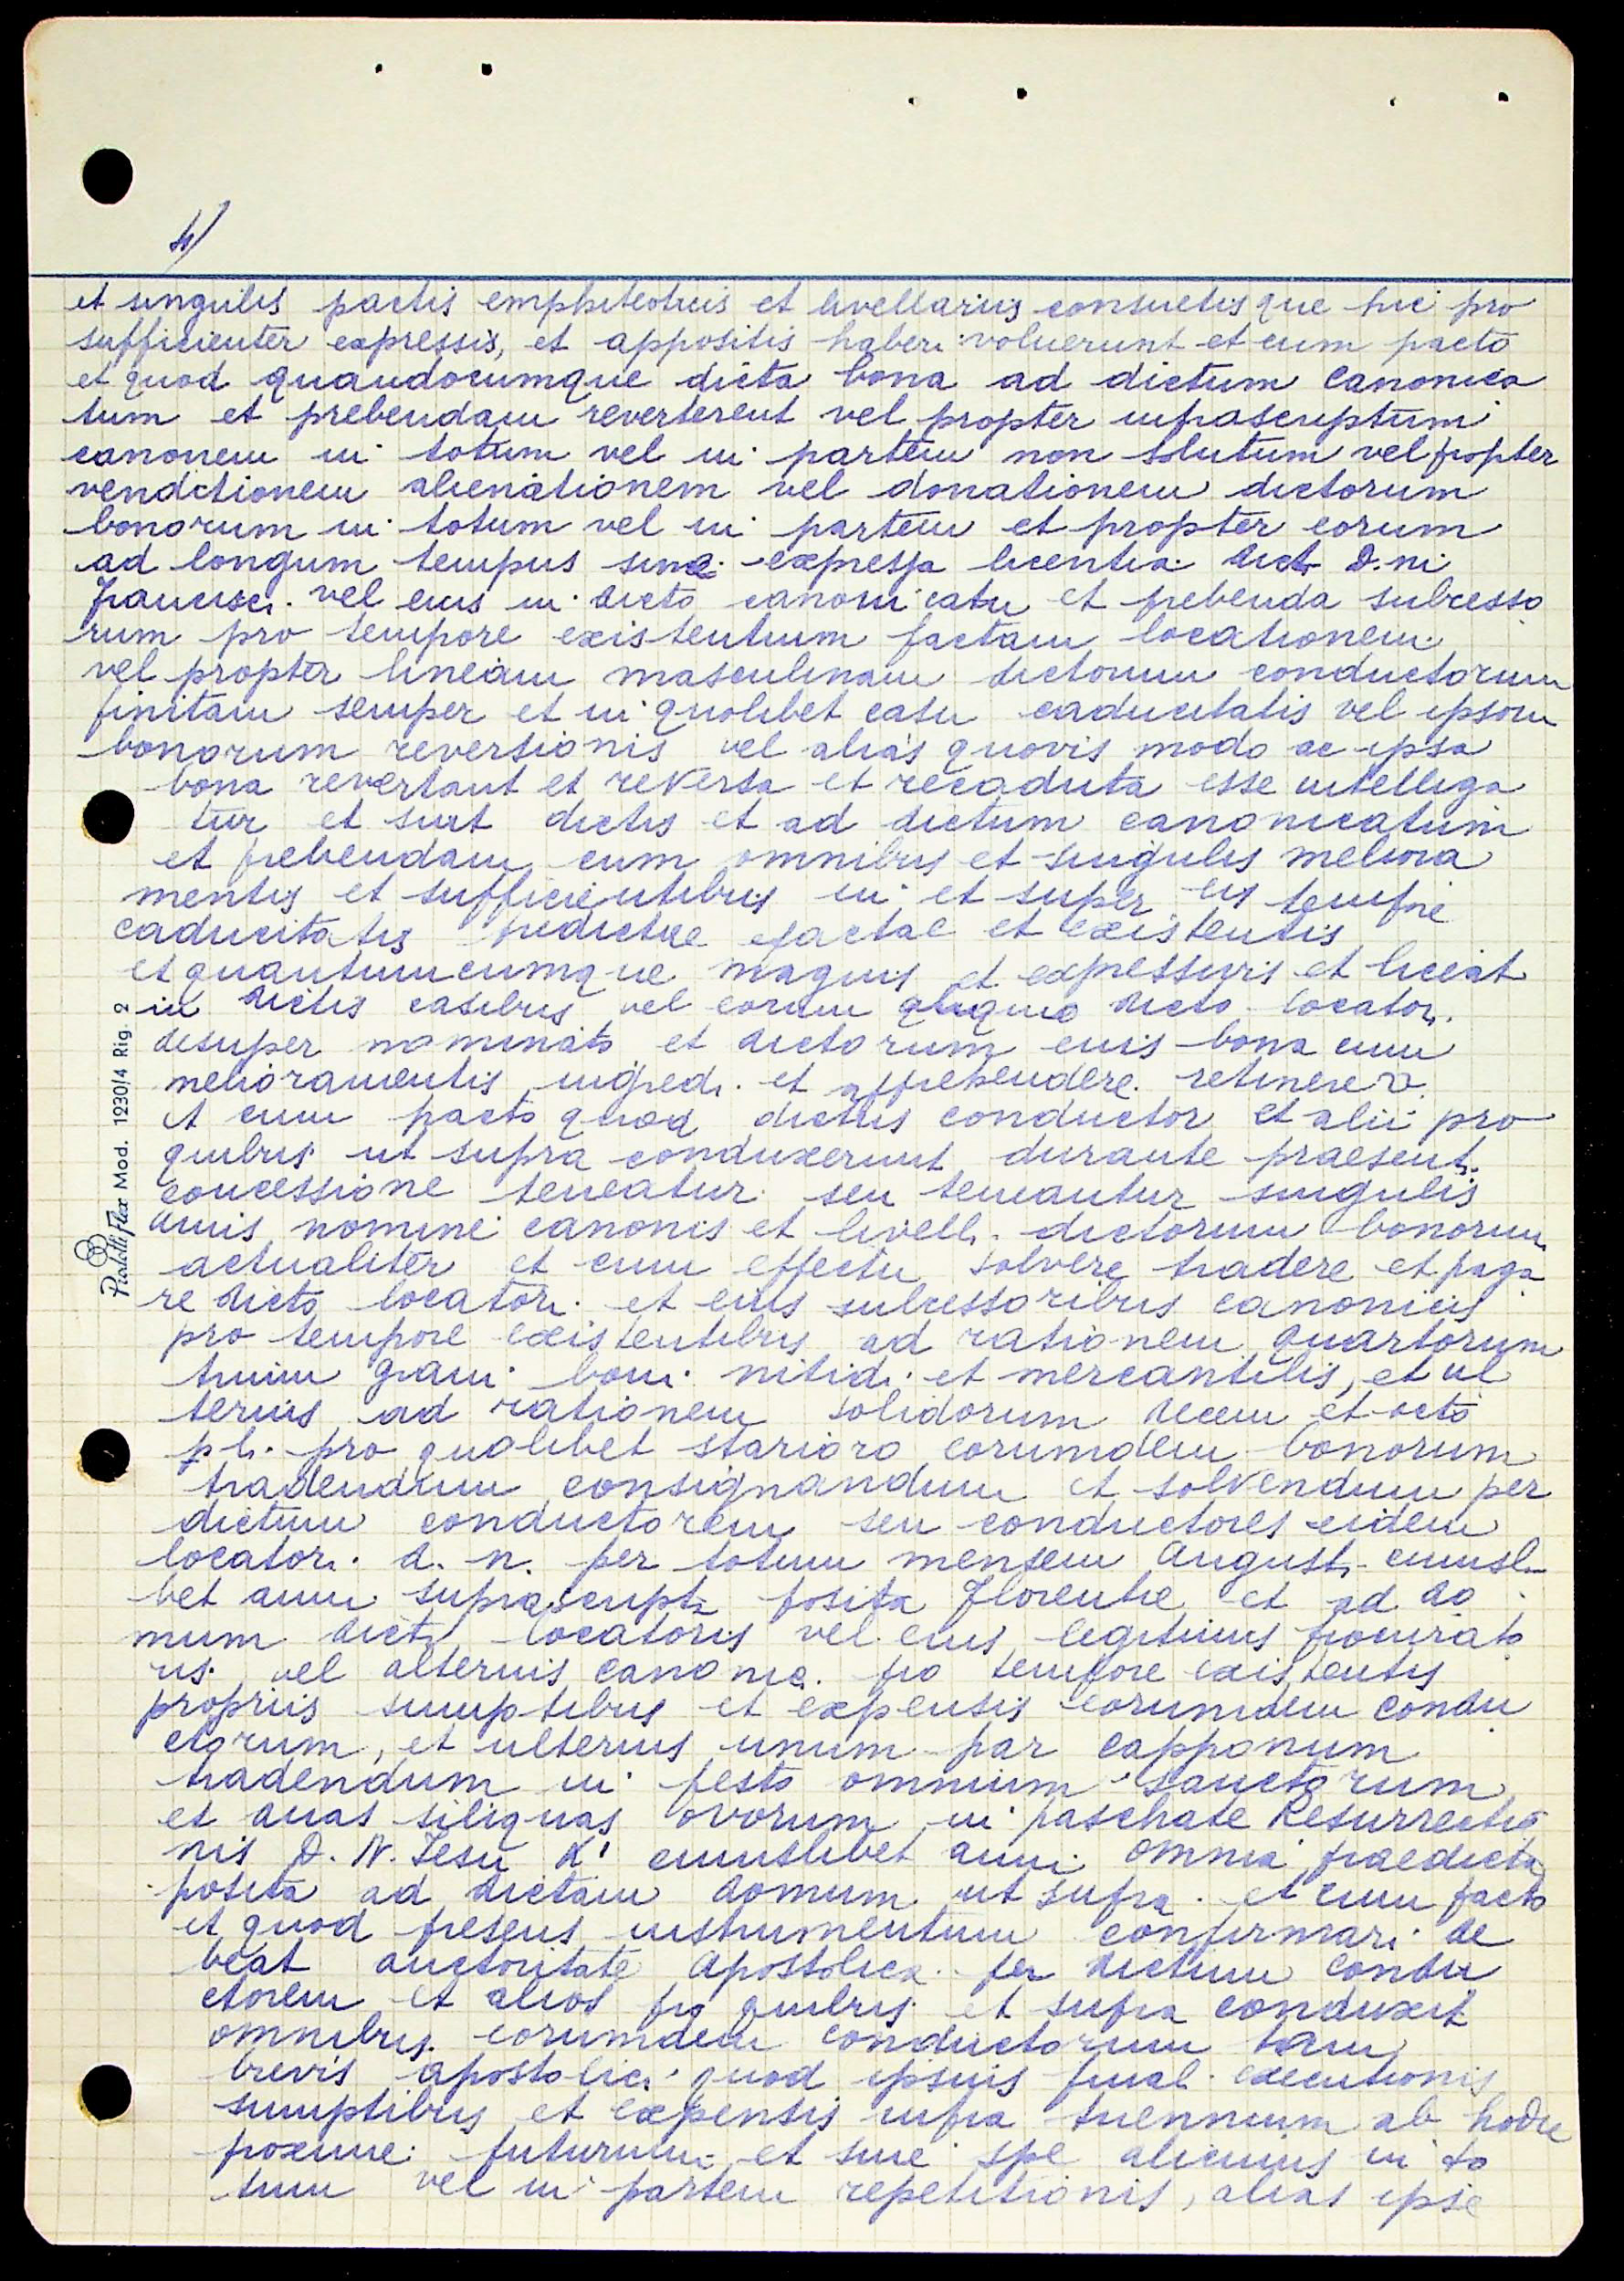 4/
et singulis pactis emphiteoticis et livellariis consuetis que hic pro
sufficienter expressis, et appositis haberi voluerunt et cum pacto
et quod quandocumque dicta bona ad dictum canonica
tum et prebendam reverterent vel propter infrascriptum
canonem in totum vel in partem non solutum vel propter
venditionem alienationem vel donationem dictorum
bonorum in totum vel in partem et propter eorum
ad longum tempus sine expressa licentia dicti D.ni
Francisci vel eius in dicto canonicatu et prebenda subcesso
rum pro tempore existentium factam locationem
vel propter lineam masculinam dictorum conductorum
finitam semper et in quolibet casu caducitatis vel ipsorum
bonorum reversionis vel alias quovis modo ac ipsa
bona revertant et reversa et recaduta esse intelliga
tur et sint dictis et ad dictum canonicatum
et prebendam cum omnibus et singulis meliora
mentis et sufficientibus in et super eis tempore
caducitatis predictae factae et existentis
et quantumcumque magnis et expressivis et liceat
in dictis casibus vel eorum quoquo dicto locatori
desuper nominato et dictorum eius bona cum
melioramentis ingredi et apprehendere retinere
et cum pacto quod dictus conductor et alii pro
quibus ut supra conduxerunt durante praesenti
concessione teneatur seu teneantur singulis
annis nomine canonis et livelli dictorum bonorum
actualiter et cum effectu solvere tradere et paga
re dicto locatori et eius subcessoribus canonicis
pro tempore existentibus ad rationem quartorum
trium grani boni nitidi et mercantilis, et ul
terius ad rationem solidorum decem et octo
pli. pro quolibet starioro eorumdem bonorum
tradendum consignandum et solvendum per
dictum conductorem seu conductores eidem
locatori d. n. per totum mensem Augusti cuiusli
bet anni suprascripta posita Florentie et ad do
mum dicti locatoris vel eius legitimis procurato
ris vel alterius canonica pro tempore existentis
propriis sumptibus et expensis eorumdem condu
ctorum, et ulterius unum par capponum
tradendum in festo omnium Sanctorum
et duas siliquas ovorum in paschate Resurrectio
nis D. N. Iesu X' cuiuslibet anni omnia praedicta
posita ad dictam domum ut supra et cum pacto
et quod presens instrumentum confirmari de
beat auctoritate Apostolica per dictum condu
ctorem et alios pro quibus et supra conduxit
omnibus eorumdem conductorum tam
brevis apostolici quod ipsius final. executionis
sumptibus et expensis infra triennium ab hodie
proxime futurum et sine spe alicuius in to
tum vel in partem repetitionis, alias ipse
Pratelli Flex Mod. 1230/4 Rig. 2